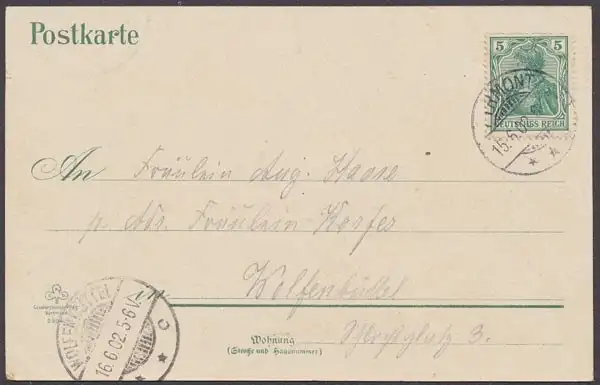 Postkarte
5 5
DEUTSCHES REICH
15.6.02
An Fräulein Aug. Haase
p. Adr. Fräulein Korfes
in Wolfenbüttel
Wohnung
(Straße und Hausnummer)
Schloßplatz 3.
WOLFENBÜTTEL
16.6.02.5-6V.
c